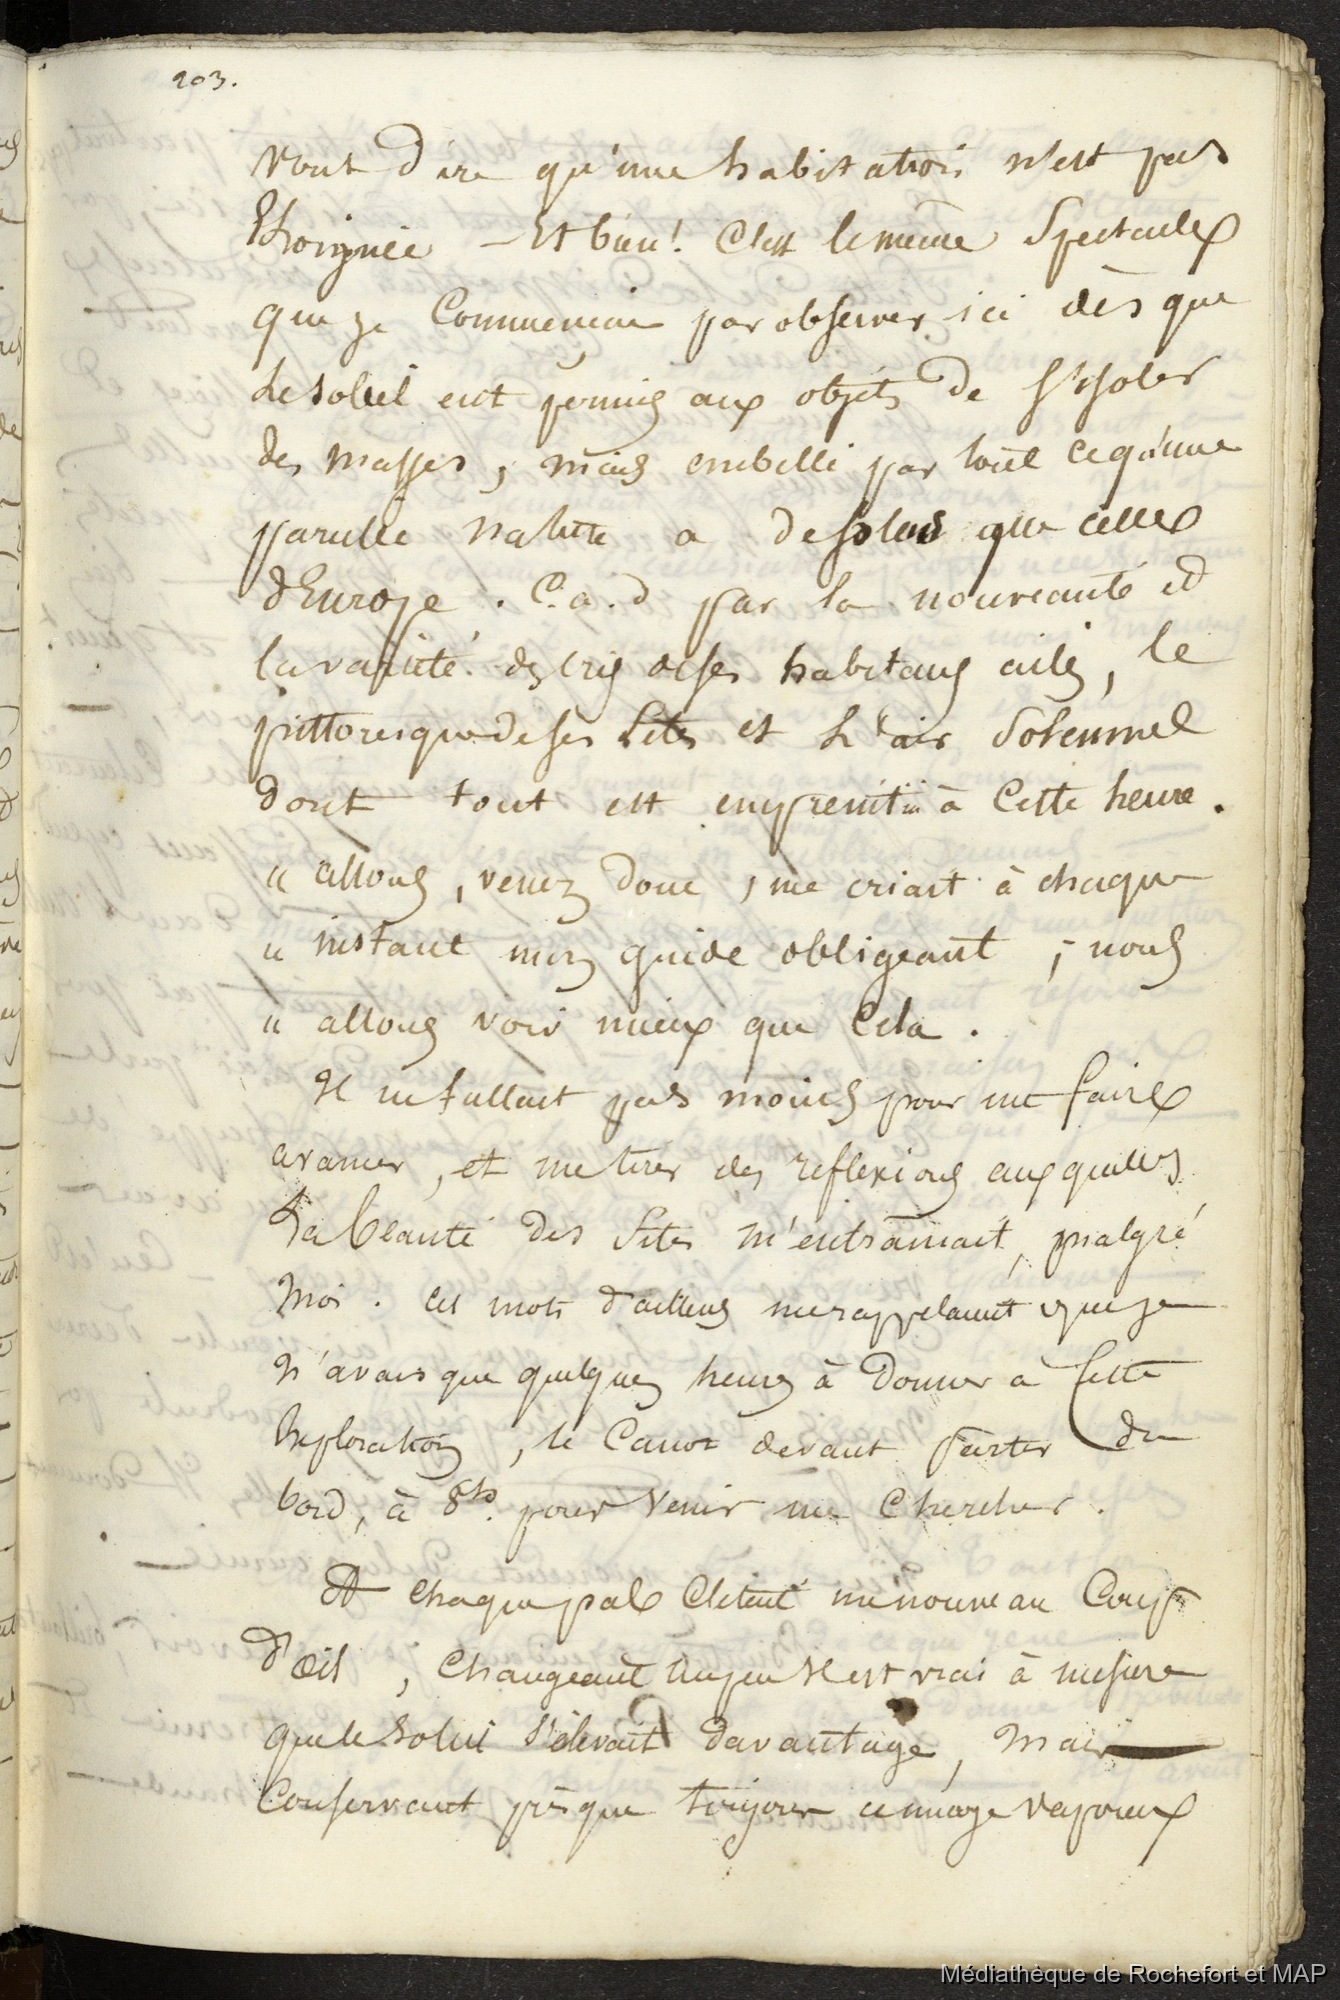 203.
vont dire qu'une habitation n'est pas
Eloignée — Et bien! C'est le même Spectacle
que je Commencai par observer ici dès que
le soleil eut permis aux objets de s'isoler
des masses, mais embelli par tout ce qu'une
pareille nature a de plus que celle
d'Europe. C.a.d par la nouveauté et
la variété des cris de ses habitans ailés, le
pittoresque de ses Sites et L'air Solennel
dont tout est empreint à Cette heure.
" allons, venez donc, me criait à chaque
" instant mon guide obligeant, nous
" allons voir mieux que Cela.
Il ne fallait pas moins pour me faire
avancer, et me tirer des reflexions auxquelles
La beauté des Sites m'entrainait, malgré
Moi. Ces mots d'ailleurs me rappelaient que je
N'avais que quelques heures à Donner à Cette
Exploration, le Canot devant Partir du
bord, à 8h. pour Venir me Chercher.
A chaque pas C'était un nouveau Coup
d'œil, Changeant un peu Il est vrai à mesure
que le Soleil s'élevait davantage, Mais
Conservant presque toujours ce nuage vapoureux
Médiathèque de Rochefort et MAP